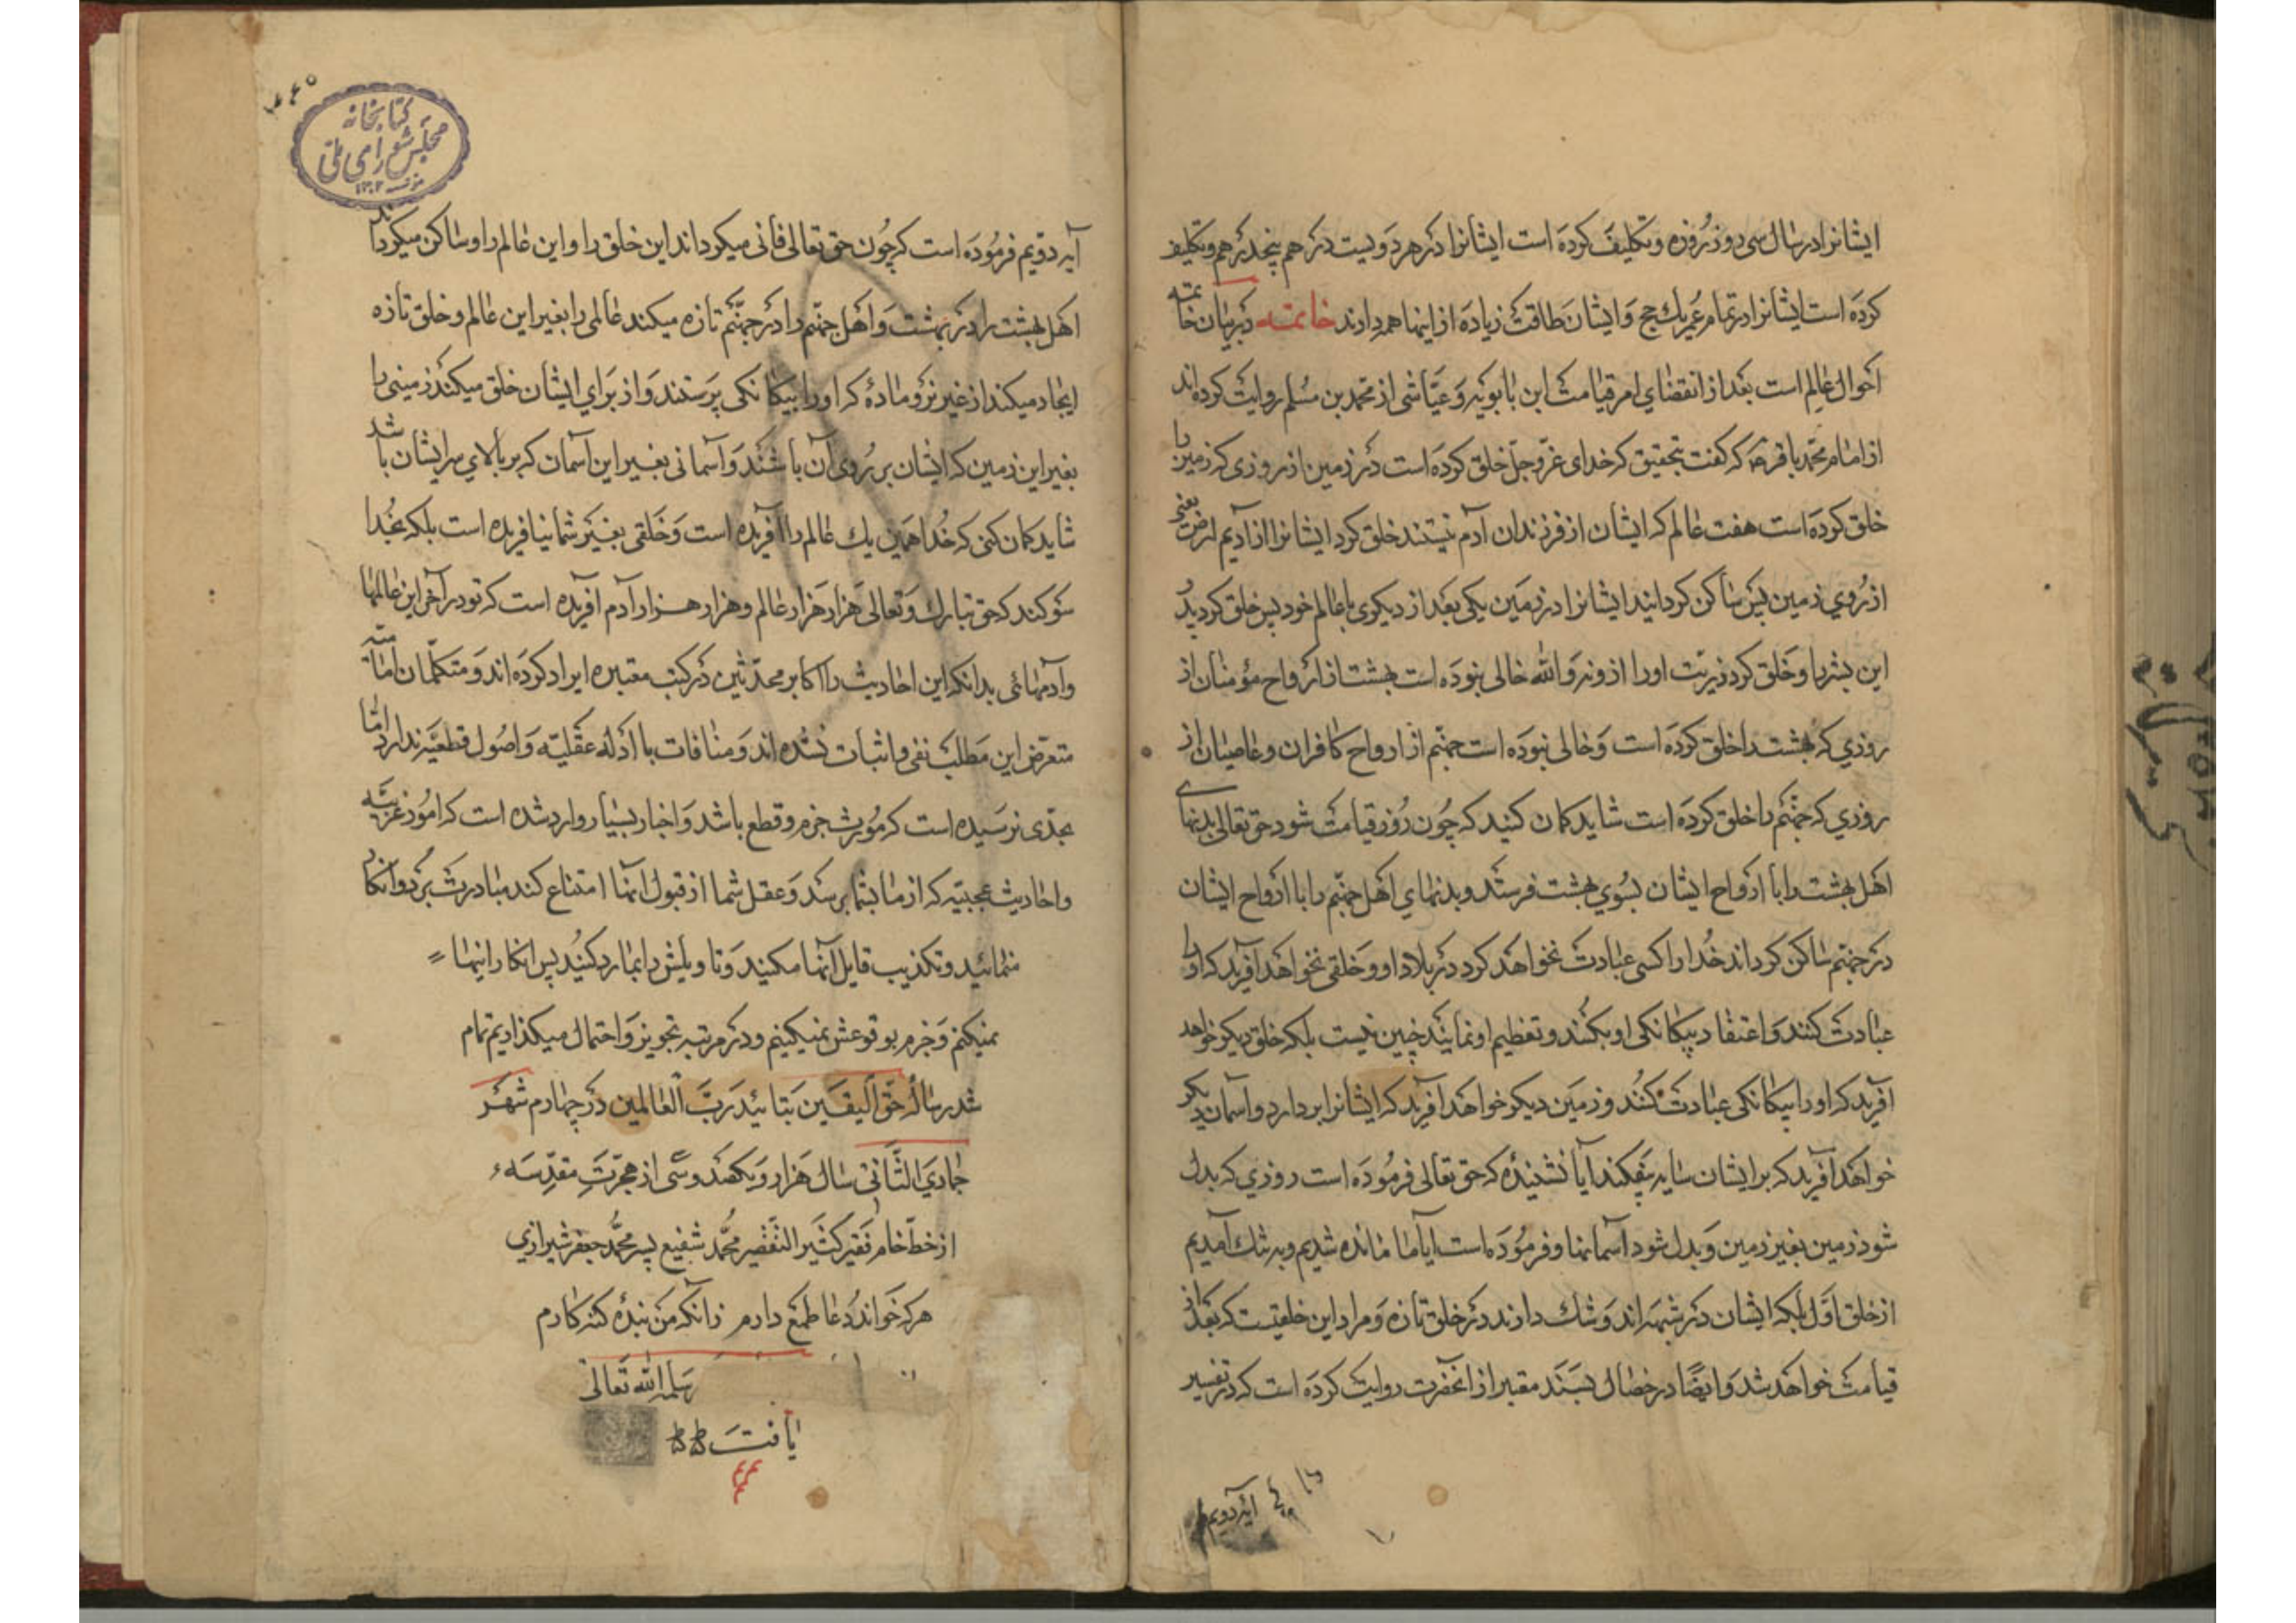 ایشانرا در سال سی روز روزه و تکلیف کرده است ایشانرا در هر دویست درهم پنجدرهم و تکلیف
کرده است ایشانرا در تمام عمر یك حج و ایشان طاقت زیاده از اینها همه دارند خاتمه در بیان خاتمه
احوال عالم است بعد از انقضای امر قیامت ابن بابویه و عیاشی از محمد بن مسلم روایت کرده اند
از امام محمد باقر ع که گفت بتحقیق که خدای عز و جل خلق کرده است در زمین از روزی که زمین را
خلق کرده است هفت عالم که ایشان از فرزندان آدم نیستند خلق کرد ایشانرا از ادیم ارض یعنی
از روی زمین پس ساکن کردانید ایشانرا در زمین یکی بعد از دیکری با عالم خود پس خلق کرد پدر
این بشر را و خلق کرد ذریت او را از او نه والله خالی نبوده است بهشت از ارواح مؤمنان از
روزی که بهشت را خلق کرده است و خالی نبوده است جهنم از ارواح کافران و عاصیان از
روزی که جهنم را خلق کرده است شاید کمان کنید که چون روز قیامت شود حق تعالی بدنهای
اهل بهشت را با ارواح ایشان بسوی بهشت فرستد و بدنهای اهل جهنم را با ارواح ایشان
در جهنم ساکن کرداند خدا را کسی عبادت نخواهد کرد در بلاد او و خلقی نخواهد آفرید که او را
عبادت کنند و اعتقاد بیکانکی او بکنند و تعظیم او نمایند چنین نیست بلکه خلق دیکر خواهد
آفرید که او را بیکانکی عبادت کنند و زمین دیکر خواهد آفرید که ایشانرا بردارد و آسمان دیکر
خواهد آفرید که بر ایشان سایه بیفکند آیا نشنیده که حق تعالی فرموده است روزی که بدل
شود زمین بغیر زمین و بدل شود آسمانها و فرموده است ایا ما مانده شدیم و به تنك آمدیم
از خلق اول بلکه ایشان در شبهه اند و شك دارند در خلق تازه و مراد این خلقیست که بعد از
قیامت خواهد شد و ایضا در خصال بسند معتبر از آنحضرت روایت کرده است که در تفسیر
آیه دویم
آیه دویم فرموده است که چون حق تعالی فانی میکرداند این خلق را و این عالم را و ساکن میکرداند
اهل بهشت را در بهشت و اهل جهنم را در جهنم تازه میکند عالمی را بغیر این عالم و خلق تازه
ایجاد میکند از غیر نر و ماده که او را بیکانکی پرستند و از برای ایشان خلق میکند زمینی را
بغیر این زمین که ایشان بر روی آن باشند و آسمانی بغیر این آسمان که بر بالای سر ایشان باشد
شاید کمان کنی که خدا همین یك عالم را آفریده است و خلقی بغیر شما نیافریده است بلکه بخدا
سوکند که حق تبارك و تعالی هزار هزار عالم و هزار هزار آدم آفریده است که تو در آخر این عالمها
و آدمهائی بدانکه این احادیث را اکابر محدثین در کتب معتبره ایراد کرده اند و متکلمان امامیه
متعرض این مطلب نفی و اثبات نشده اند و منافات با ادله عقلیه و اصول قطعیه ندارد اما
بحدی نرسیده است که مورث جزم و قطع باشد و اخبار بسیار وارد شده است که امور غریبه
و احادیث عجیبه که از ما بشما برسد و عقل شما از قبول آنها امتناع کند مبادرت برد و انکار
منمائید و تکذیب قایل آنها مکنید و تاویلش را بما رد کنید پس انکار اینها
نمیکنیم و جزم بوقوعش نمیکنیم و در مرتبه تجویز و احتمال میکذاریم تمام
شد رساله حق الیقین بتائید رب العالمین در چهارم شهر
جمادی الثانی سال هزار و یکصد و سی از هجرت مقدسه
از خط خام فقیر کثیر التقصیر محمد شفیع پسر محمد جعفر شیرازی
هر که خواند دعا طمع دارم زانکه من بنده کنه کارم
سلمه الله تعالی
کتابخانه
مجلس شورای ملی